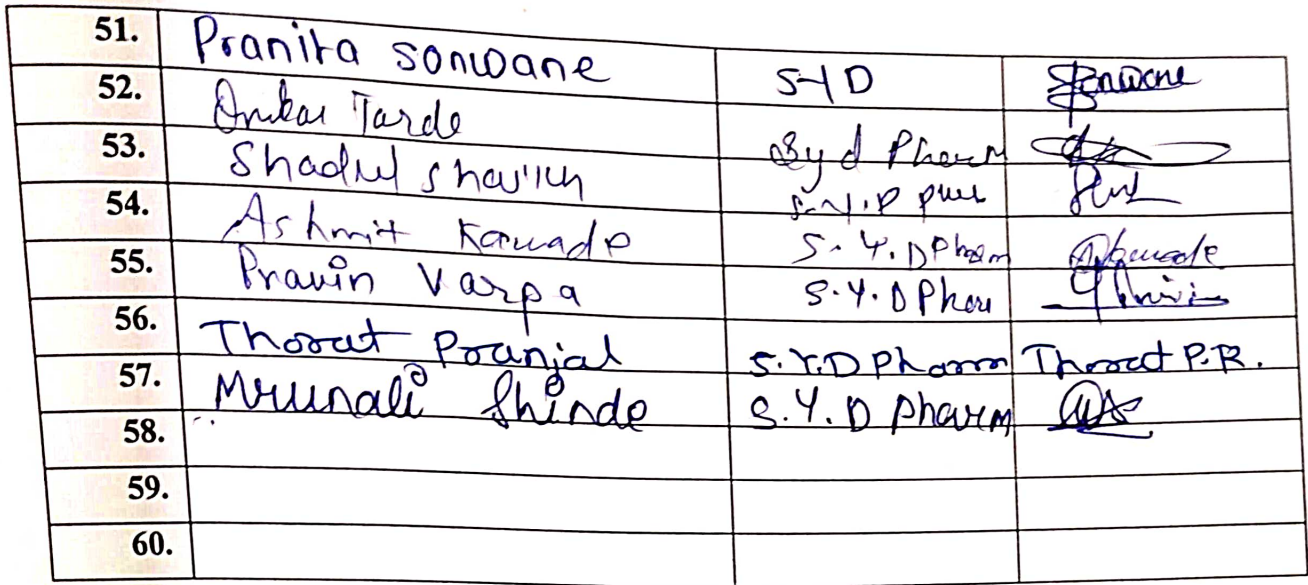 51. Pranita sonwane S-Y D Sonwane
52. Omkar Tarde Sy d Pharm
53. Shadul shaikh S.Y.D
54. Ashmit Kawade S.Y.D Pharm
55. Pravin Varpa S.Y.D Phar
56. Thorat Pranjal S.Y.D Pharm Thorat P.R.
57. Mrunali Shinde S.Y.D Pharm
58.
59.
60.